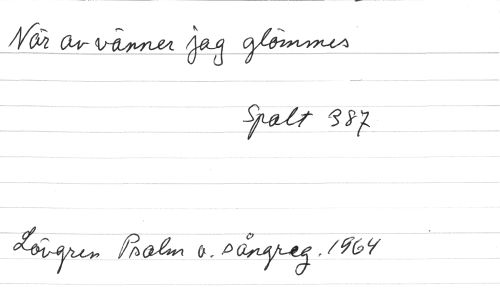 När av vänner jag glömmes
Spalt 387
Lövgren Psalm o. sångreg. 1964